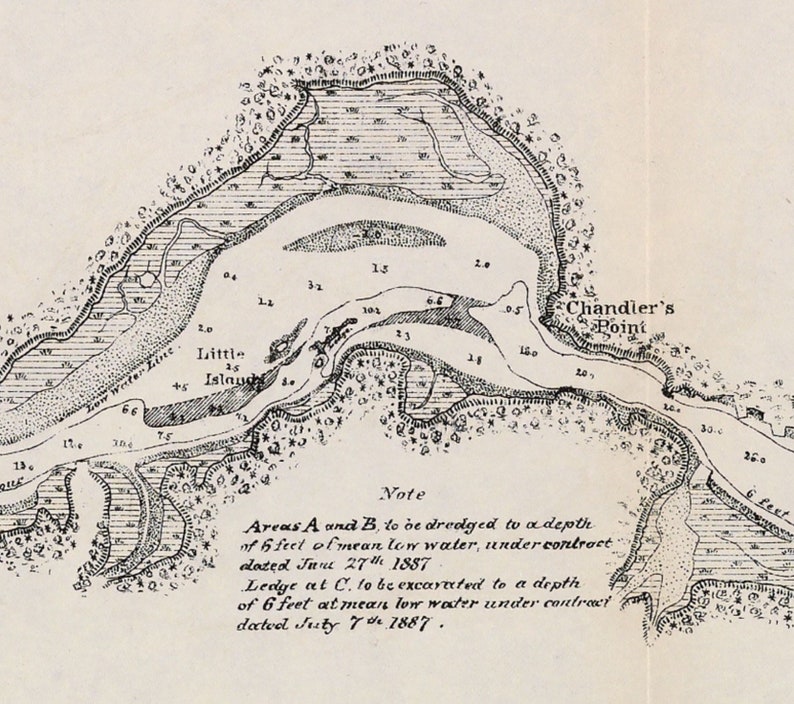 2.0
1.5
2.0
0.4
3.2
1.2
6.6
10.2
0.5
Chandler's
Point
2.0
2.3
Little
Islands
1.8
18.0
20.0
Low Water Line
8.0
6.6
7.5
30.0
26.0
13.0
6 feet
Note
Areas A and B, to be dredged to a depth
of 6 feet at mean low water, under contract
dated June 27th 1887
Ledge at C, to be excavated to a depth
of 6 feet at mean low water under contract
dated July 7th 1887.